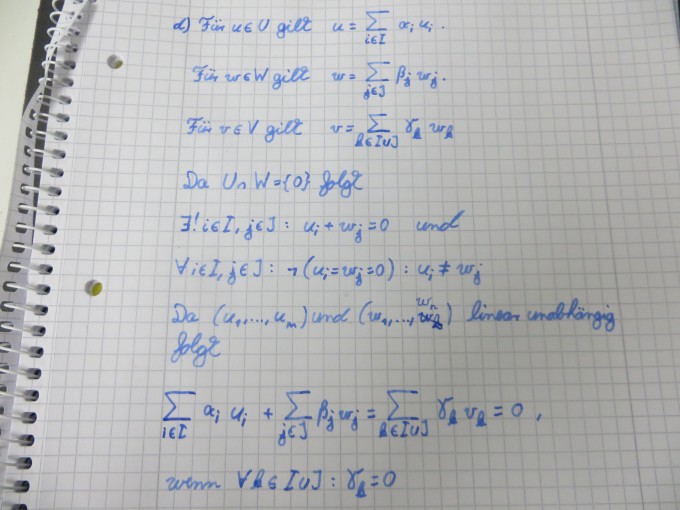 d) Für u∈U gilt u = ∑_{i∈I} α_i u_i.
Für w∈W gilt w = ∑_{j∈J} β_j w_j.
Für v∈V gilt v = ∑_{k∈I∪J} γ_k w_k
Da U∩W={0} folgt
∃! i∈I, j∈J : u_i + w_j = 0 und
∀i∈I, j∈J : ¬(u_i=w_j=0) : u_i ≠ w_j
Da (u_1,...,u_m) und (w_1,...,w_n) linear unabhängig
folgt
∑_{i∈I} α_i u_i + ∑_{j∈J} β_j w_j = ∑_{k∈I∪J} γ_k v_k = 0 ,
wenn ∀k∈I∪J : γ_k = 0